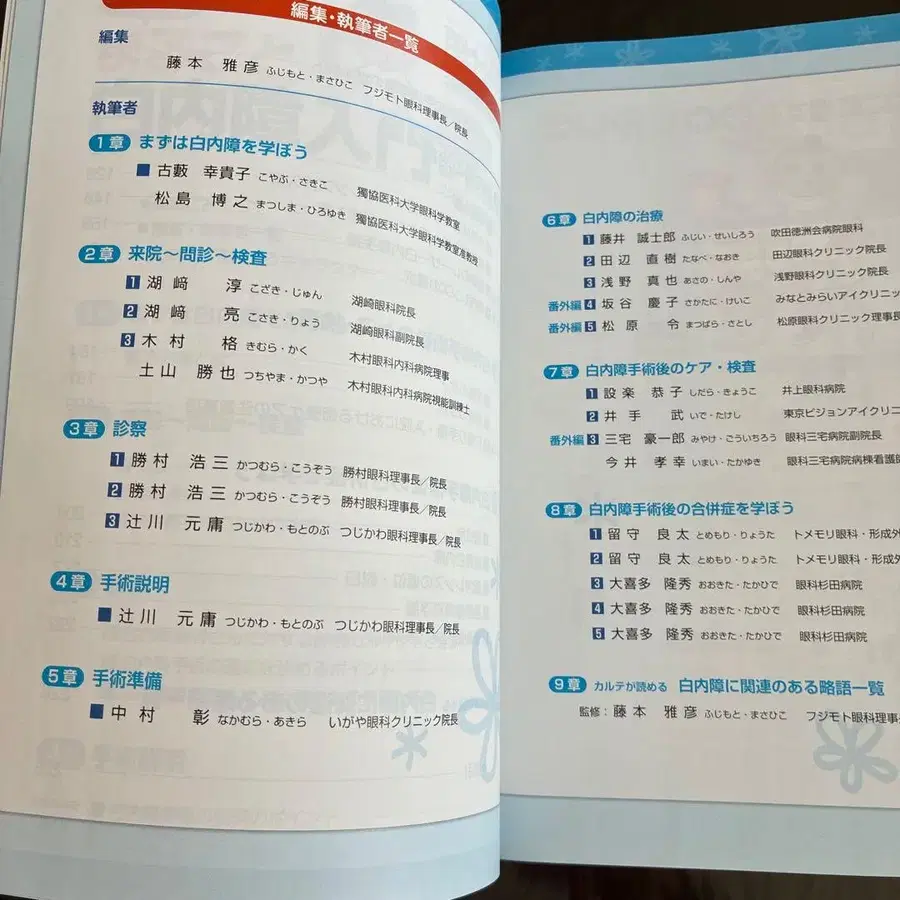 編集・執筆者一覧
編集
藤本 雅彦 ふじもと・まさひこ フジモト眼科理事長／院長
執筆者
1章 まずは白内障を学ぼう
■ 古藪 幸貴子 こやぶ・さきこ 獨協医科大学眼科学教室
松島 博之 まつしま・ひろゆき 獨協医科大学眼科学教室准教授
2章 来院～問診～検査
1 湖﨑 淳 こざき・じゅん 湖崎眼科院長
2 湖﨑 亮 こさき・りょう 湖崎眼科副院長
3 木村 格 きむら・かく 木村眼科内科病院理事
土山 勝也 つちやま・かつや 木村眼科内科病院視能訓練士
3章 診察
1 勝村 浩三 かつむら・こうぞう 勝村眼科理事長／院長
2 勝村 浩三 かつむら・こうぞう 勝村眼科理事長／院長
3 辻川 元庸 つじかわ・もとのぶ つじかわ眼科理事長／院長
4章 手術説明
■ 辻川 元庸 つじかわ・もとのぶ つじかわ眼科理事長／院長
5章 手術準備
■ 中村 彰 なかむら・あきら いがや眼科クリニック院長
6章 白内障の治療
1 藤井 誠士郎 ふじい・せいしろう 吹田徳洲会病院眼科
2 田辺 直樹 たなべ・なおき 田辺眼科クリニック院長
3 浅野 真也 あさの・しんや 浅野眼科クリニック院長
番外編 4 坂谷 慶子 さかたに・けいこ みなとみらいアイクリニッ
番外編 5 松原 令 まつばら・さとし 松原眼科クリニック理事長
7章 白内障手術後のケア・検査
1 設楽 恭子 しだら・きょうこ 井上眼科病院
2 井手 武 いで・たけし 東京ビジョンアイクリニ
番外編 3 三宅 豪一郎 みやけ・ごういちろう 眼科三宅病院副院長
今井 孝幸 いまい・たかゆき 眼科三宅病院病棟看護師
8章 白内障手術後の合併症を学ぼう
1 留守 良太 とめもり・りょうた トメモリ眼科・形成外
2 留守 良太 とめもり・りょうた トメモリ眼科・形成外
3 大喜多 隆秀 おおきた・たかひで 眼科杉田病院
4 大喜多 隆秀 おおきた・たかひで 眼科杉田病院
5 大喜多 隆秀 おおきた・たかひで 眼科杉田病院
9章 カルテが読める 白内障に関連のある略語一覧
監修：藤本 雅彦 ふじもと・まさひこ フジモト眼科理事長